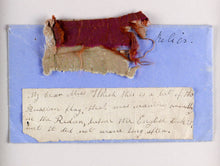 Relics.
My dear Miss I think this is a bit of the
Russian flag that was
in the Redan before the English
but it did not wave long after.